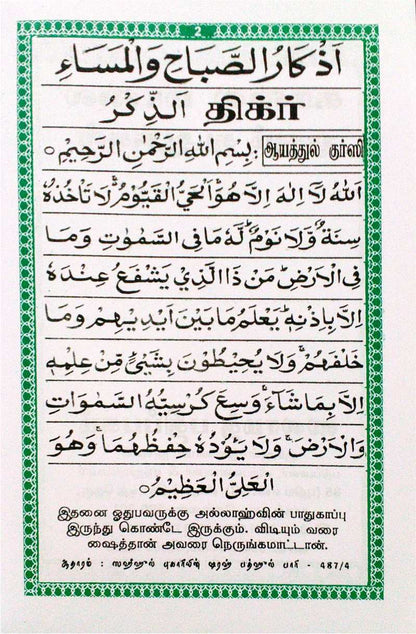 2
اَذْكَارُ الصَّبَاحِ وَالْمَسَاءِ
اَلذِّكْرُ திக்ர்
ஆயத்துல் குர்ஸி : بِسْمِ اللهِ الرَّحْمٰنِ الرَّحِيْمِ ○
اَللهُ لَآ اِلٰهَ اِلَّا هُوَ اَلْحَيُّ الْقَيُّوْمُ لَا تَاْخُذُهٗ
سِنَةٌ وَّلَا نَوْمٌ لَهٗ مَا فِى السَّمٰوٰتِ وَمَا
فِى الْاَرْضِ مَنْ ذَا الَّذِيْ يَشْفَعُ عِنْدَهٗ
اِلَّا بِاِذْنِهٖ يَعْلَمُ مَا بَيْنَ اَيْدِيْهِمْ وَمَا
خَلْفَهُمْ وَلَا يُحِيْطُوْنَ بِشَيْئٍ مِّنْ عِلْمِهٖ
اِلَّا بِمَا شَآءَ وَسِعَ كُرْسِيُّهُ السَّمٰوَاتِ
وَالْاَرْضَ وَلَا يَـُٔوْدُهٗ حِفْظُهُمَا وَهُوَ
الْعَلِىُّ الْعَظِيْمُ ○
இதனை ஓதுபவருக்கு அல்லாஹ்வின் பாதுகாப்பு
இருந்து கொண்டே இருக்கும். விடியும் வரை
ஷைத்தான் அவரை நெருங்கமாட்டான்.
ஆதாரம் : ஸஹீஹுல் புகாரியின் ஷரஹ் பத்ஹுல் பாரி - 487/4